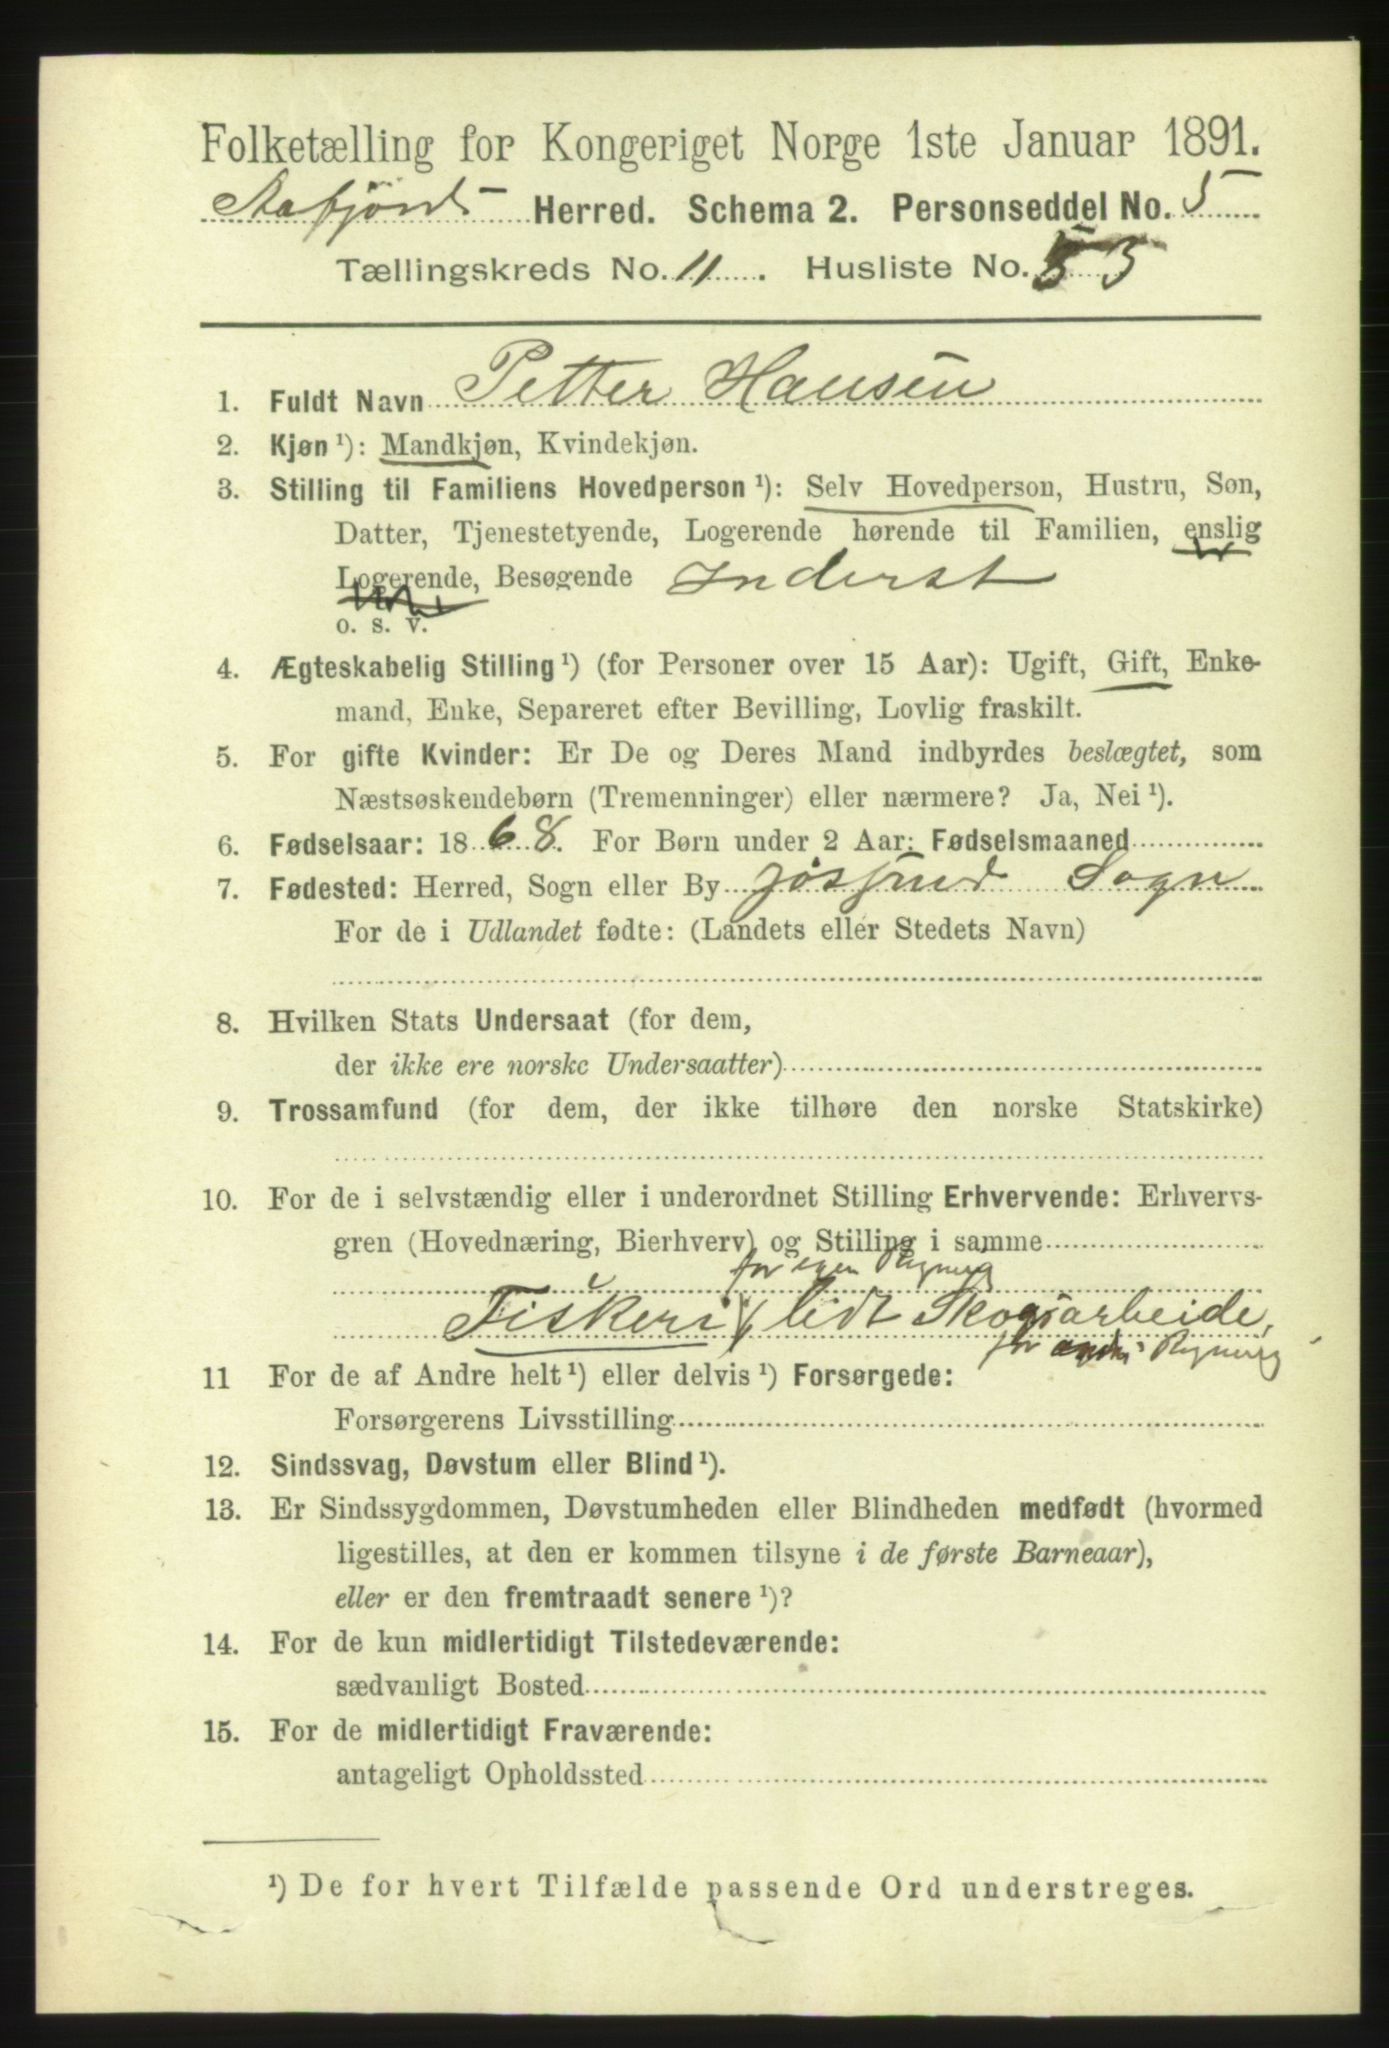 Folketælling for Kongeriget Norge 1ste Januar 1891.
Aafjord Herred. Schema 2. Personseddel No. 5
Tællingskreds No. 11. Husliste No. 5
1. Fuldt Navn Petter Hansen
2. Kjøn ¹): Mandkjøn, Kvindekjøn.
3. Stilling til Familiens Hovedperson ¹): Selv Hovedperson, Hustru, Søn,
Datter, Tjenestetyende, Logerende hørende til Familien, enslig
Logerende, Besøgende Inderst
o. s. v.
4. Ægteskabelig Stilling ¹) (for Personer over 15 Aar): Ugift, Gift, Enke-
mand, Enke, Separeret efter Bevilling, Lovlig fraskilt.
5. For gifte Kvinder: Er De og Deres Mand indbyrdes beslægtet, som
Næstsøskendebørn (Tremenninger) eller nærmere? Ja, Nei ¹).
6. Fødselsaar: 1868. For Børn under 2 Aar: Fødselsmaaned
7. Fødested: Herred, Sogn eller By Jøssund Sogn
For de i Udlandet fødte: (Landets eller Stedets Navn)
8. Hvilken Stats Undersaat (for dem,
der ikke ere norske Undersaatter)
9. Trossamfund (for dem, der ikke tilhøre den norske Statskirke)
10. For de i selvstændig eller i underordnet Stilling Erhvervende: Erhvervs-
gren (Hovednæring, Bierhverv) og Stilling i samme
for egen Regning
Fiskeri lidt Skogsarbeide,
for andres Regning
11 For de af Andre helt ¹) eller delvis ¹) Forsørgede:
Forsørgerens Livsstilling
12. Sindssvag, Døvstum eller Blind ¹).
13. Er Sindssygdommen, Døvstumheden eller Blindheden medfødt (hvormed
ligestilles, at den er kommen tilsyne i de første Barneaar),
eller er den fremtraadt senere ¹)?
14. For de kun midlertidigt Tilstedeværende:
sædvanligt Bosted
15. For de midlertidigt Fraværende:
antageligt Opholdssted
¹) De for hvert Tilfælde passende Ord understreges.